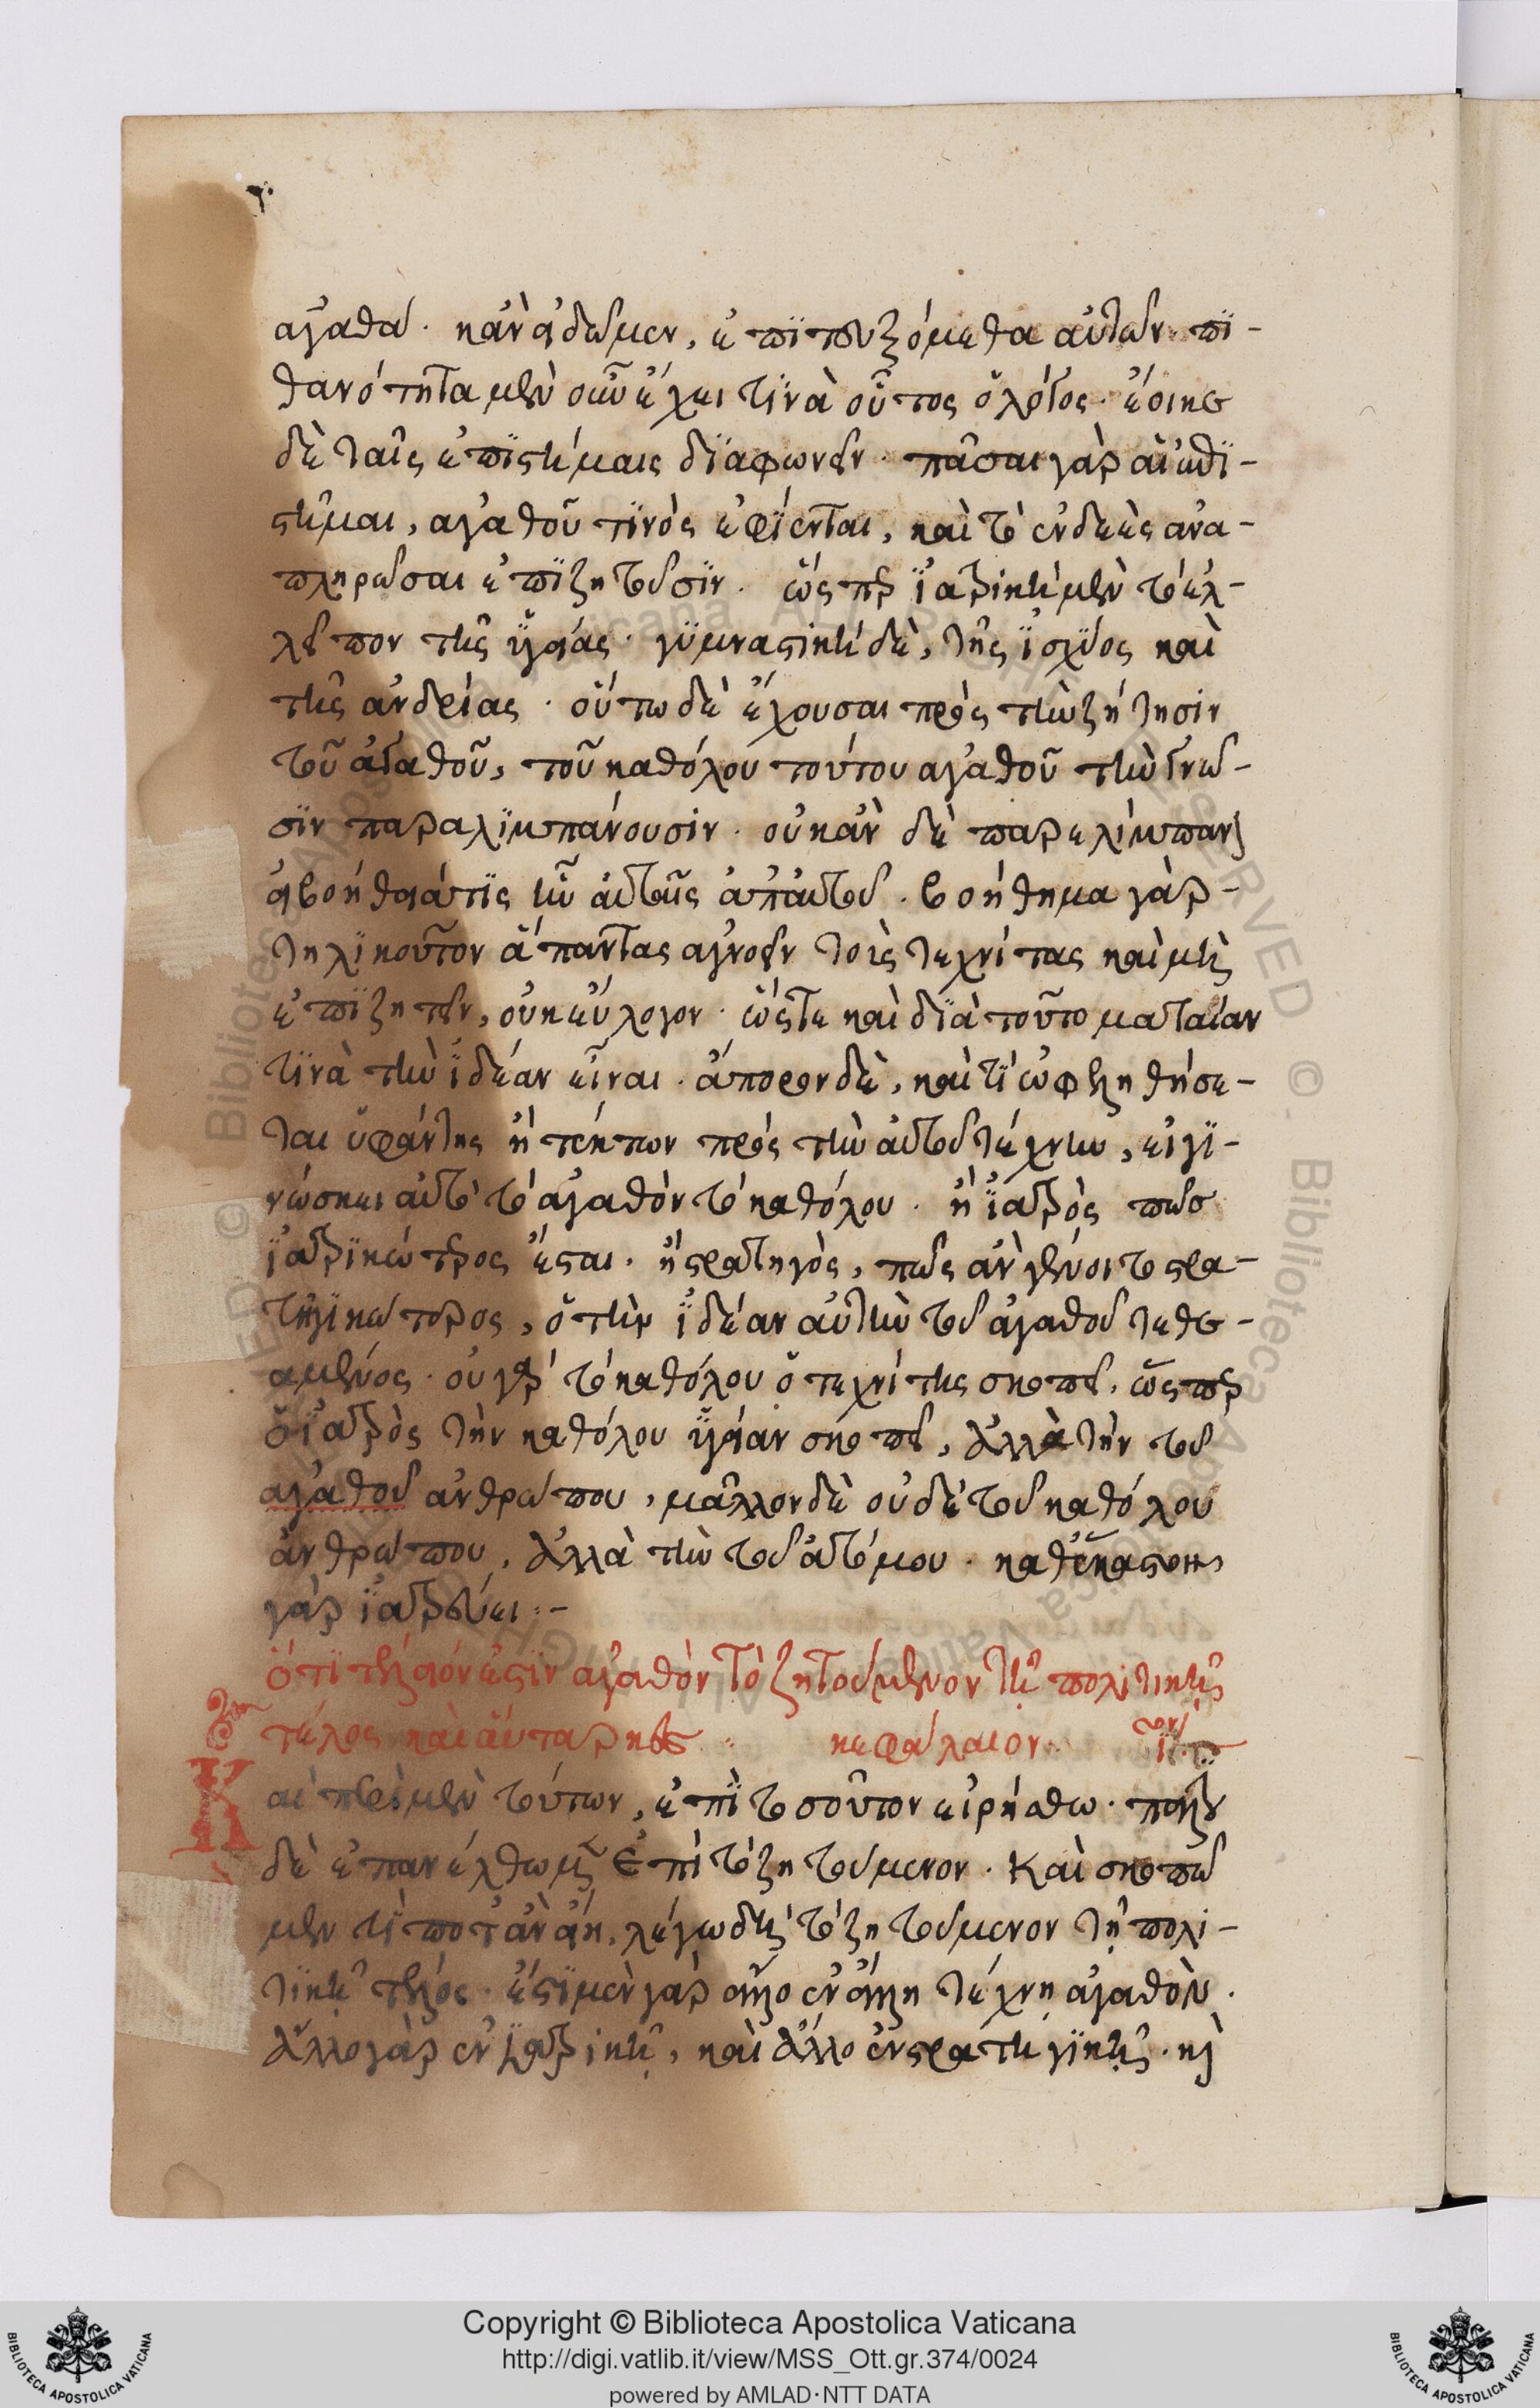 ἀγαθά. κἂν εἰδῶμεν, ἐπιτευξόμεθα αὐτῶν. πι-
θανότητα μὲν οὖν ἔχει τινὰ οὗτος ὁ λόγος. ἔοικε
δὲ ταῖς ἐπιστήμαις διαφωνεῖν. πᾶσαι γὰρ αἱ ἐπι-
στῆμαι, ἀγαθοῦ τινὸς ἐφίενται, καὶ τὸ ἐνδεὲς ἀνα-
πληρῶσαι ἐπιζητοῦσιν. ὥσπερ ἰατρικὴ μὲν τὸ ἐλ-
λεῖπον τῆς ὑγείας. γυμναστικὴ δὲ, τῆς ἰσχύος καὶ
τῆς ἀνδρίας. οὕτω δὲ ἔχουσαι πρὸς τὴν ζήτησιν
τοῦ ἀγαθοῦ, τοῦ καθόλου τούτου ἀγαθοῦ τὴν γνῶ-
σιν παραλιμπάνουσιν. οὐκ ἂν δὲ παρελίμπανον
εἰ βοήθειά τις ἦν αὐταῖς ἀπ' αὐτοῦ. βοήθημα γὰρ
τηλικοῦτον ἅπαντας ἀγνοεῖν τοὺς τεχνίτας καὶ μὴ
ἐπιζητεῖν, οὐκ εὔλογον. ὥστε καὶ διὰ τοῦτο ματαίαν
τινὰ τὴν ἰδέαν εἶναι. ἄπορον δὲ, καὶ τί ὠφεληθήσε-
ται ὑφάντης ἢ τέκτων πρὸς τὴν αὐτοῦ τέχνην, εἰ γι-
νώσκει αὐτὸ τὸ ἀγαθὸν τὸ καθόλου. ἢ ἰατρὸς πῶς
ἰατρικώτερος ἔσται. ἢ στρατηγὸς, πῶς ἂν γένοιτο στρα-
τηγικώτερος, ὁ τὴν ἰδέαν αὐτὴν τοῦ ἀγαθοῦ τεθε-
αμένος. οὐ γὰρ τὸ καθόλου ὁ τεχνίτης σκοπεῖ. ὥσπερ
ὁ ἰατρὸς τὴν καθόλου ὑγείαν σκοπεῖ, ἀλλὰ τὴν τοῦ
ἀγαθοῦ ἀνθρώπου, μᾶλλον δὲ οὐδὲ τοῦ καθόλου
ἀνθρώπου, ἀλλὰ τὴν τοῦ ἀτόμου. καθ' ἕκαστον
γὰρ ἰατρεύει :-
ὅτι τέλειόν ἐστιν ἀγαθὸν τὸ ζητούμενον τῆς πολιτικῆς
τέλος καὶ αὔταρκες : κεφάλαιον
Καὶ περὶ μὲν τούτων, ἐπὶ τοσοῦτον εἰρήσθω. πάλιν
δὲ ἐπανέλθωμεν ἐπὶ τὸ ζητούμενον. καὶ σκοπῶ
μεν τί ποτ' ἂν εἴη. λέγω δὴ τὸ ζητούμενον τῇ πολι-
τικῇ τέλος. ἔστι μὲν γὰρ ἄλλο ἐν ἄλλῃ τέχνῃ ἀγαθὸν.
ἄλλο γὰρ ἐν ἰατρικῇ, καὶ ἄλλο ἐν στρατηγικῇ. καὶ
Copyright © Biblioteca Apostolica Vaticana
http://digi.vatlib.it/view/MSS_Ott.gr.374/0024
powered by AMLAD·NTT DATA
BIBLIOTECA APOSTOLICA VATICANA
BIBLIOTECA APOSTOLICA VATICANA